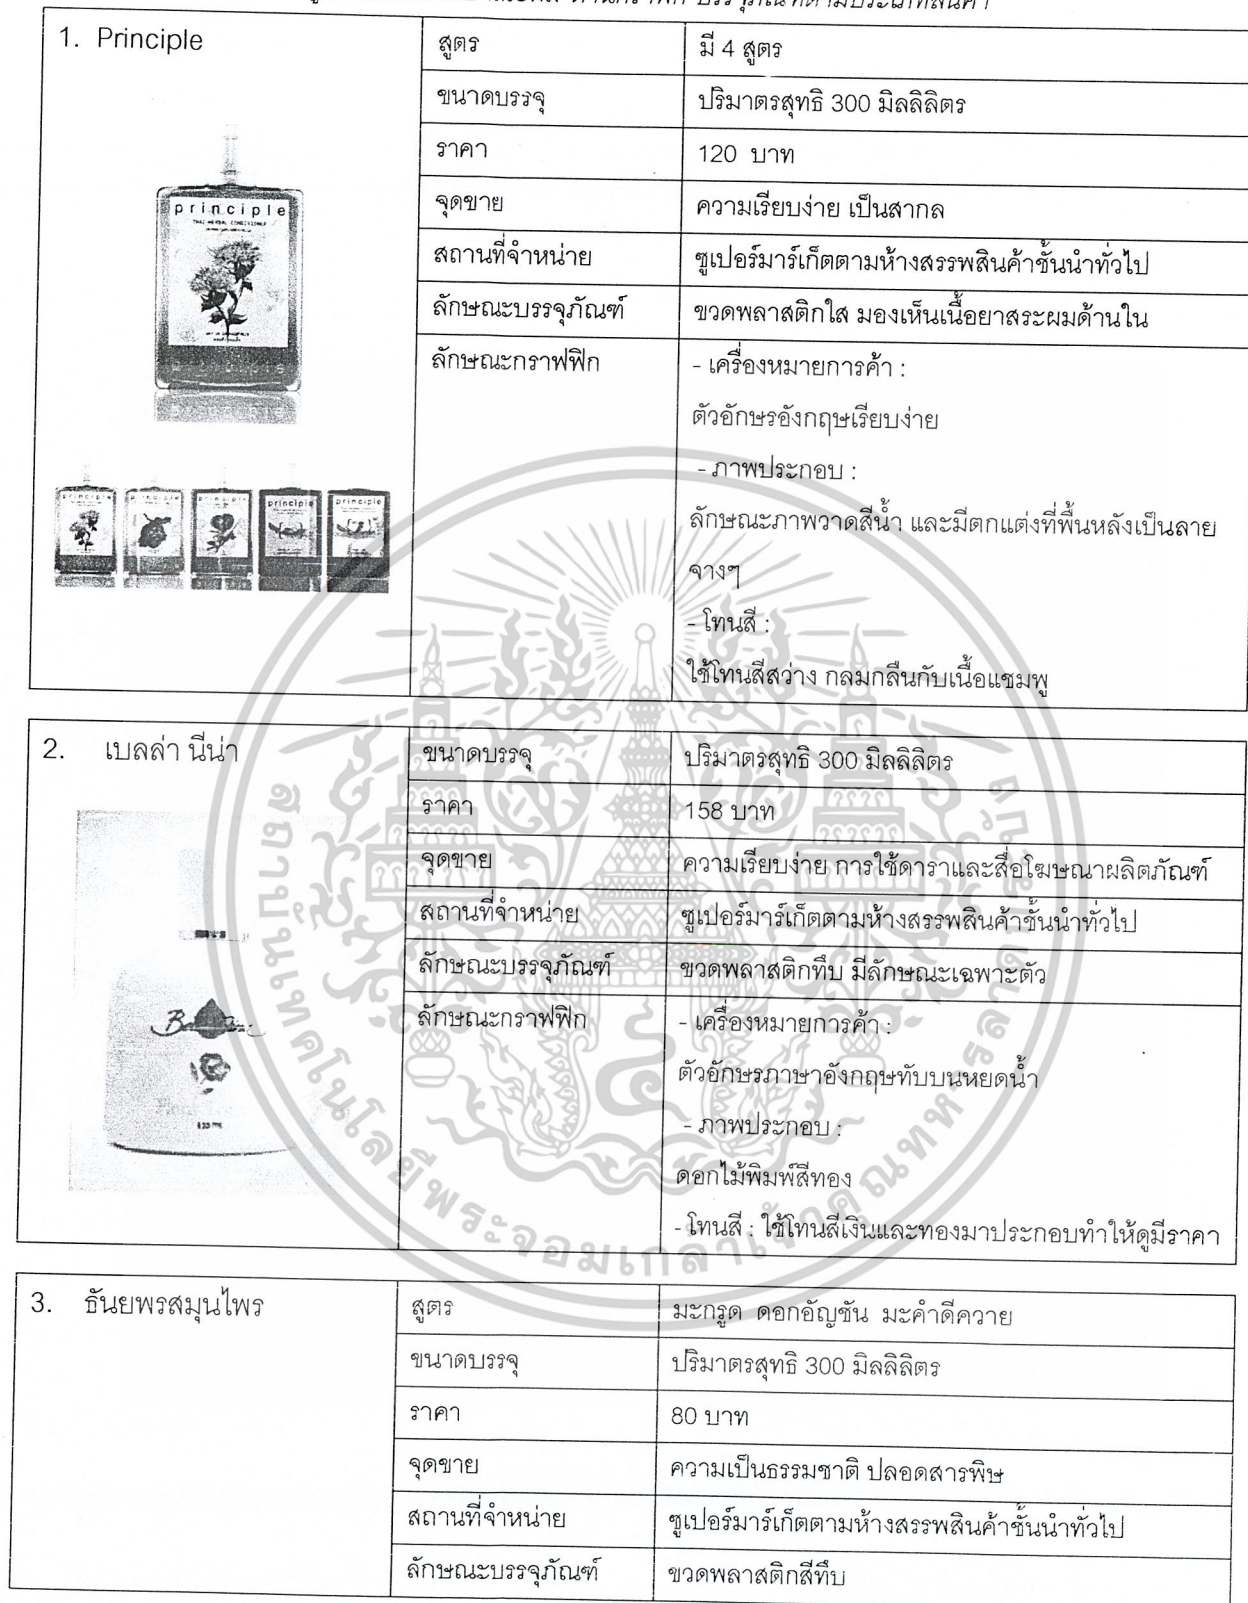 1. Principle
สูตร
มี 4 สูตร
ขนาดบรรจุ
ปริมาตรสุทธิ 300 มิลลิลิตร
ราคา
120 บาท
จุดขาย
ความเรียบง่าย เป็นสากล
สถานที่จำหน่าย
ซูเปอร์มาร์เก็ตตามห้างสรรพสินค้าชั้นนำทั่วไป
ลักษณะบรรจุภัณฑ์
ขวดพลาสติกใส มองเห็นเนื้อยาสระผมด้านใน
ลักษณะกราฟฟิก
- เครื่องหมายการค้า :
ตัวอักษรอังกฤษเรียบง่าย
- ภาพประกอบ :
ลักษณะภาพวาดสีน้ำ และมีตกแต่งที่พื้นหลังเป็นลาย
จางๆ
- โทนสี :
ใช้โทนสีสว่าง กลมกลืนกับเนื้อแชมพู
principle
THAI HERBAL CONDITIONER
principle
principle
principle
principle
principle
2. เบลล่า นีน่า
ขนาดบรรจุ
ปริมาตรสุทธิ 300 มิลลิลิตร
ราคา
158 บาท
จุดขาย
ความเรียบง่าย การใช้ดาราและสื่อโฆษณาผลิตภัณฑ์
สถานที่จำหน่าย
ซูเปอร์มาร์เก็ตตามห้างสรรพสินค้าชั้นนำทั่วไป
ลักษณะบรรจุภัณฑ์
ขวดพลาสติกทึบ มีลักษณะเฉพาะตัว
ลักษณะกราฟฟิก
- เครื่องหมายการค้า :
ตัวอักษรภาษาอังกฤษทับบนหยดน้ำ
- ภาพประกอบ :
ดอกไม้พิมพ์สีทอง
- โทนสี : ใช้โทนสีเงินและทองมาประกอบทำให้ดูมีราคา
สถาบันเทคโนโลยีพระจอมเกล้าเจ้าคุณทหารลาดกระบัง
3. ธันยพรสมุนไพร
สูตร
มะกรูด ดอกอัญชัน มะคำดีควาย
ขนาดบรรจุ
ปริมาตรสุทธิ 300 มิลลิลิตร
ราคา
80 บาท
จุดขาย
ความเป็นธรรมชาติ ปลอดสารพิษ
สถานที่จำหน่าย
ซูเปอร์มาร์เก็ตตามห้างสรรพสินค้าชั้นนำทั่วไป
ลักษณะบรรจุภัณฑ์
ขวดพลาสติกสีทึบ